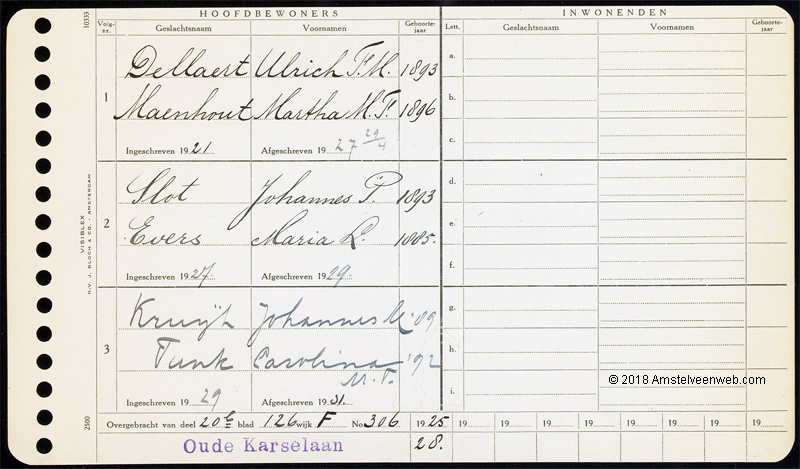 HOOFDBEWONERS INWONENDEN
Volg-nr. Geslachtsnaam Voornamen Geboorte-jaar Lett. Geslachtsnaam Voornamen Geboorte-jaar
1
Dellaert Ulrich F.M. 1893
Maenhout Martha M.F. 1896
Ingeschreven 1921 Afgeschreven 1927 29/4
a.
b.
c.
2
Slot Johannes P. 1893
Evers Maria L. 1885.
Ingeschreven 1927. Afgeschreven 1929.
d.
e.
f.
3
Kruijt Johannes M. '09
Funk Carolina M.F. '92
Ingeschreven 1929 Afgeschreven 1931.
g.
h.
i.
© 2018 Amstelveenweb.com
Overgebracht van deel 20b blad 126 wijk F No. 306 1925 19 19 19 19 19 19 19
Oude Karselaan 28.
10333
VISIBLEX
N.V. J. BLOCH & CO. - AMSTERDAM
2500